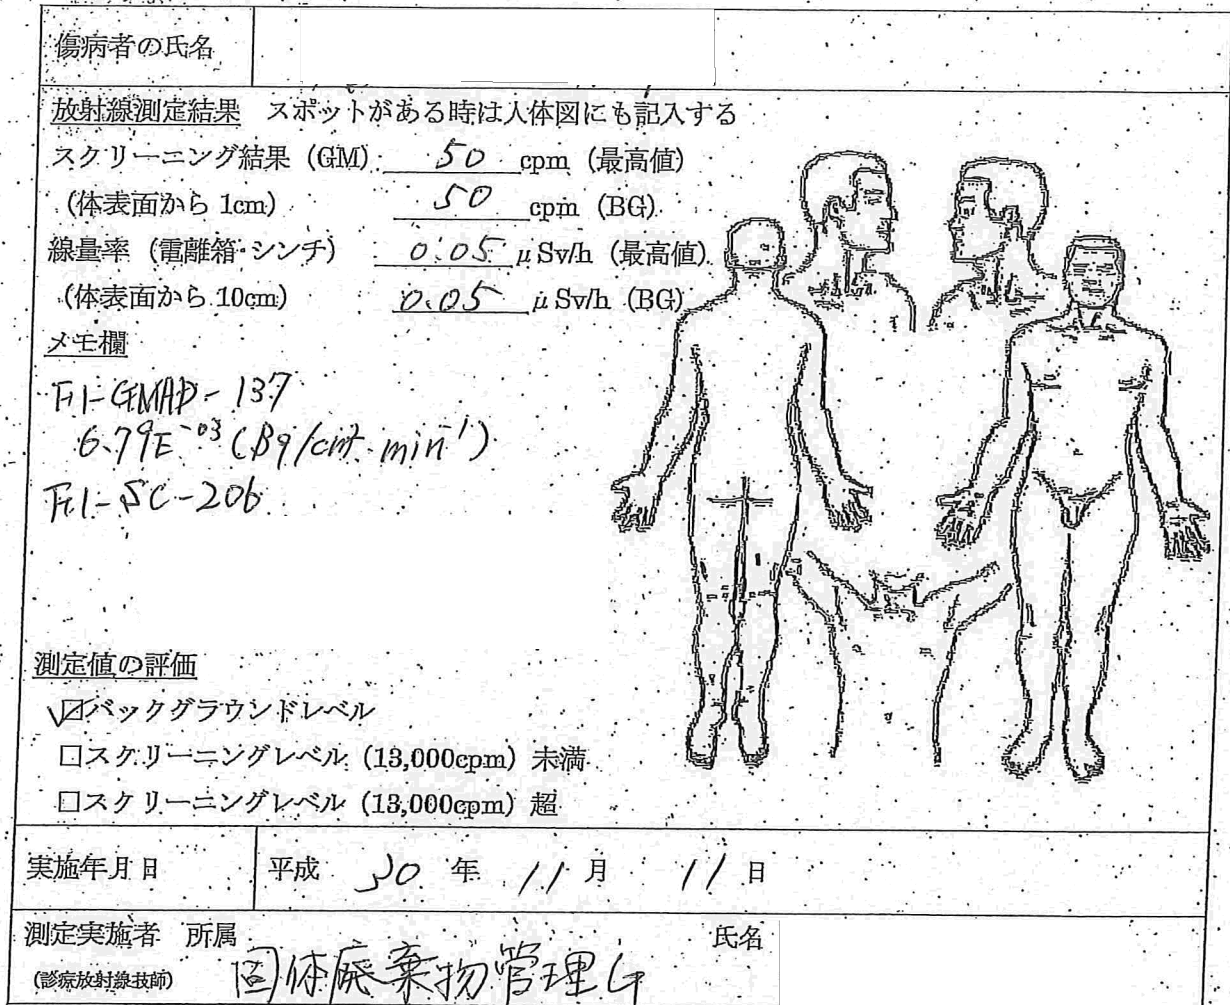 傷病者の氏名
放射線測定結果 スポットがある時は人体図にも記入する
スクリーニング結果 (GM) 50 cpm (最高値)
(体表面から 1cm) 50 cpm (BG)
線量率 (電離箱・シンチ) 0.05 μSv/h (最高値)
(体表面から 10cm) 0.05 μSv/h (BG)
メモ欄
F1-GMAD-137
6.79E-03 (Bq/cm² min⁻¹)
F1-SC-206
測定値の評価
☑バックグラウンドレベル
□スクリーニングレベル (13,000cpm) 未満
□スクリーニングレベル (13,000cpm) 超
実施年月日 平成 30 年 11 月 11 日
測定実施者 所属 固体廃棄物管理G 氏名
(診療放射線技師)